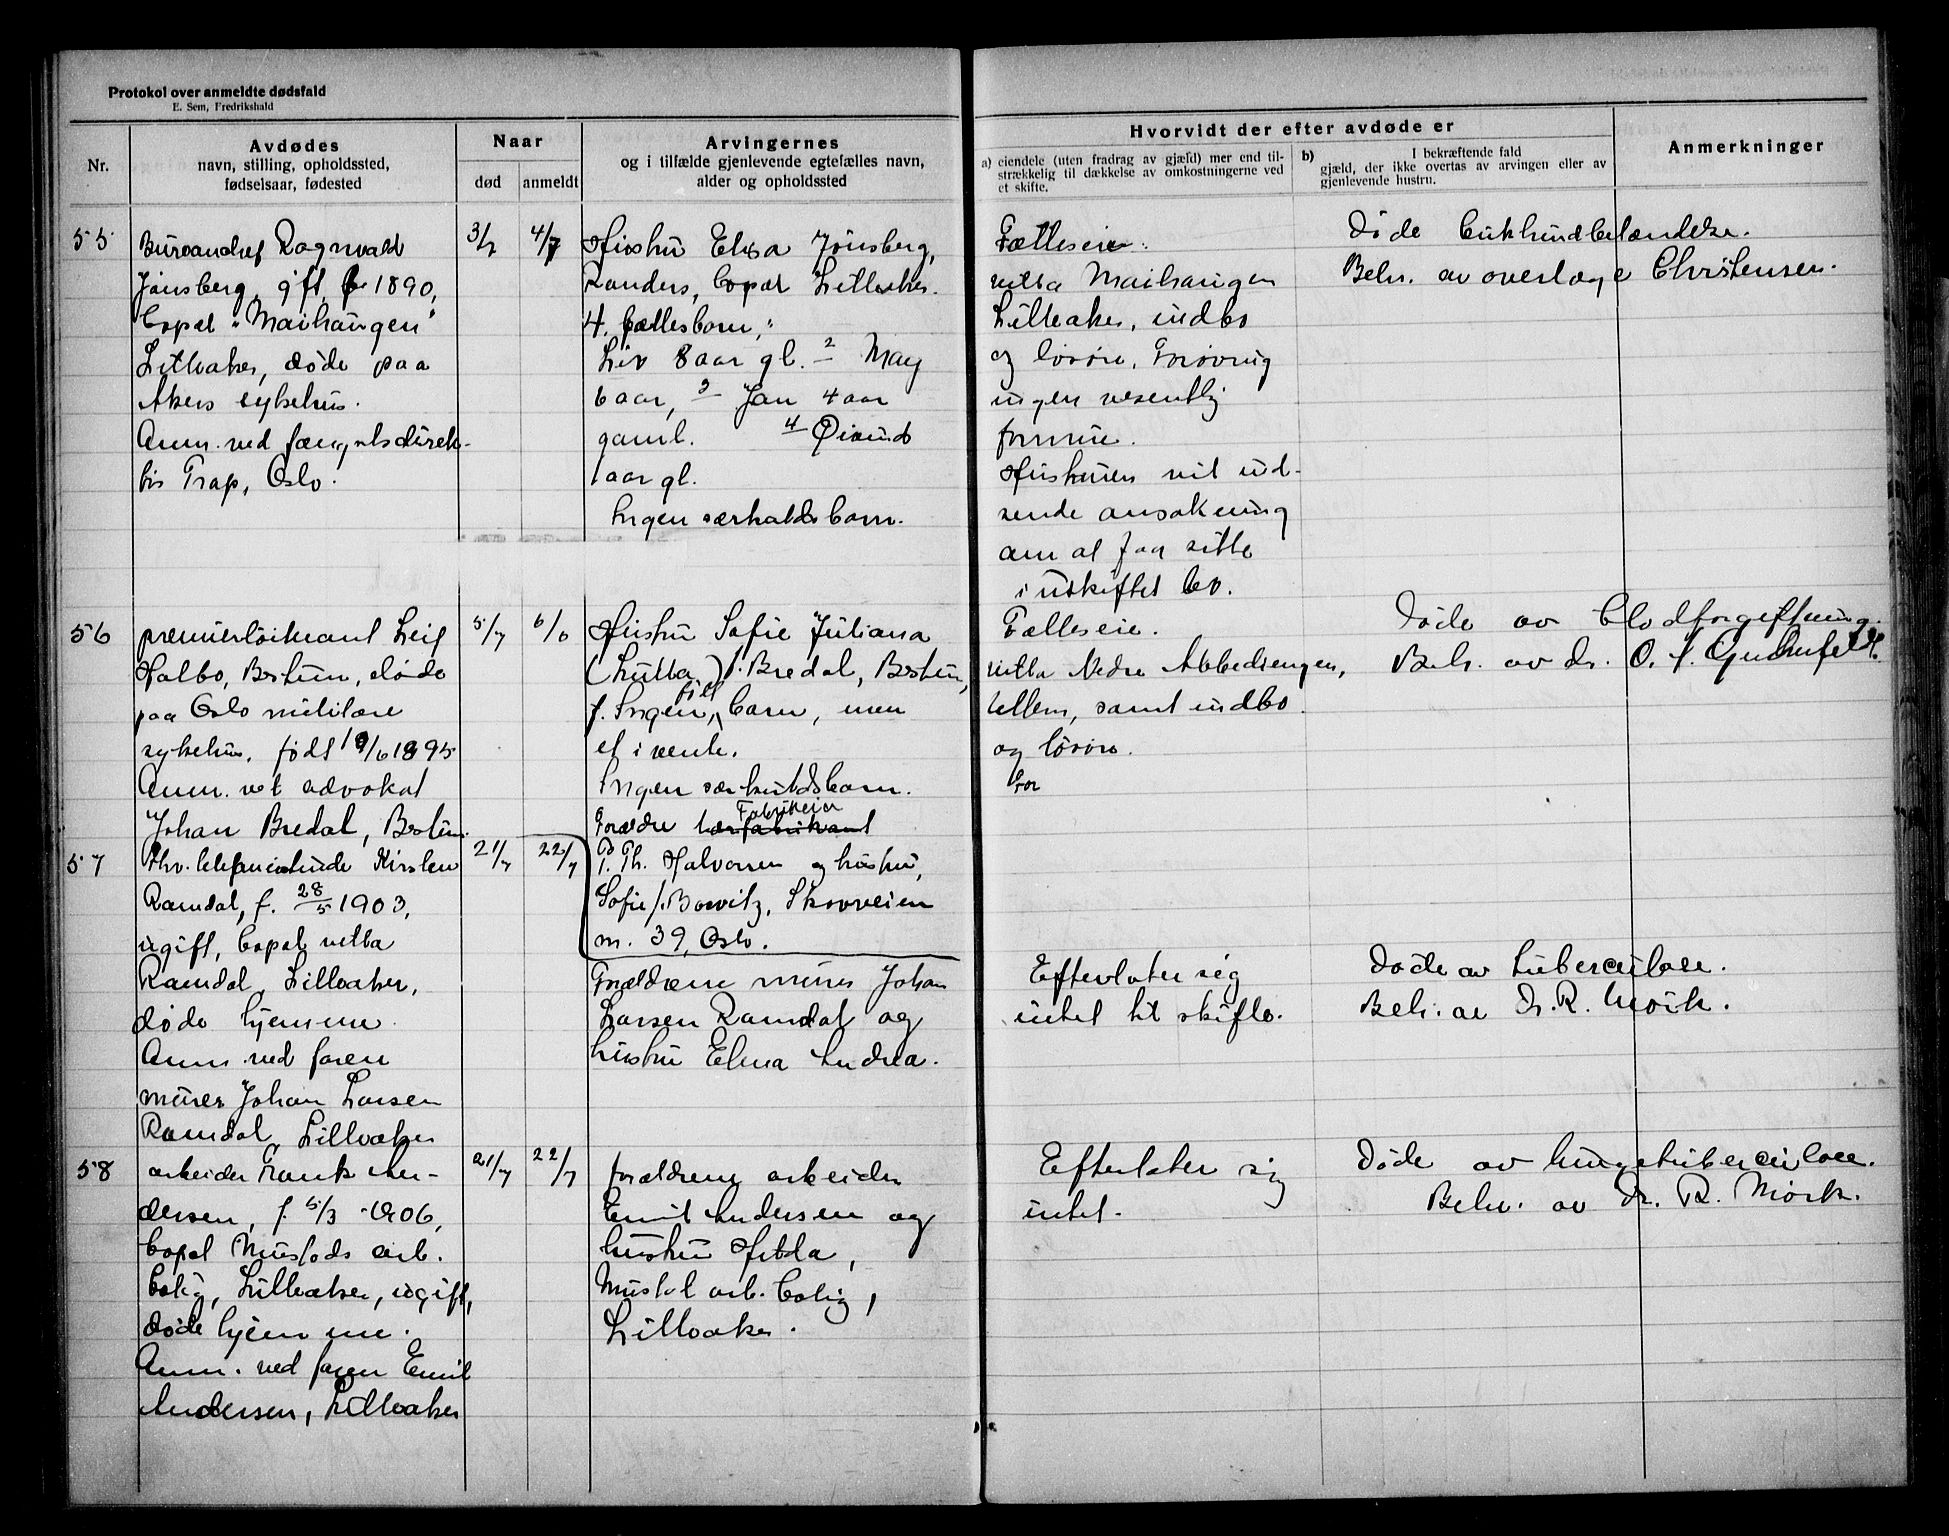 Protokol over anmeldte dødsfald
E. Sem, Fredrikshald
Nr.
Avdødes
navn, stilling, opholdssted,
fødselsaar, fødested
Naar
død
anmeldt
Arvingernes
og i tilfælde gjenlevende egtefælles navn,
alder og opholdssted
Hvorvidt der efter avdøde er
a) eiendele (uten fradrag av gjæld) mer end til-
strækkelig til dækkelse av omkostningerne ved
et skifte.
b) I bekræftende fald
gjæld, der ikke overtas av arvingen eller av
gjenlevende hustru.
Anmerkninger
55
Bureauchef Ragnvald
Jønsberg, gift, f. 1890,
bopæl "Maihaugen"
Lilleaker, døde paa
Akers sykehus.
Anm. ved fængselsdirek-
tør Trap, Oslo.
3/7
4/7
Hustru Elisa Jønsberg,
Randers, bopæl Lilleaker.
4 fællesbarn:
Liv 8 aar gl. 2 May
6 aar, 3 Jan 4 aar
gaml. 4 Øivind
1 aar gl.
Ingen særkuldsbarn.
Fælleseie:
villa Maihaugen
Lilleaker, indbo
og løsøre. Forøvrig
ingen vesentlig
formue.
Hustruen vil ind-
sende ansøkning
om at faa sitte
i uskiftet bo.
Døde bukhindbetændelse.
Beh. av overlæge Christensen.
56
premierløitnant Leif
Halbo, Bestum, døde
paa Oslo militære
sykehus, født 19/6 1895
Anm. ved advokat
Johan Bredal, Bestum.
5/7
6/
Hustru Sofie Juliana
(Lulla) f. Bredal, Bestum,
f. Ingen fæll barn, men
et i vente.
Ingen særkuldsbarn.
Forældre Fabrikeier
P. Th. Halvorsen og hustru,
Sofie f. Borvitz, Skovveien
nr. 39, Oslo.
Fælleseie.
villa Nedre Abbediengen,
Ullern, samt indbo
og løsøre.
for
Døde av blodforgiftning.
Beh. av dr. O. J.
57
Fhv. telefonistinde Kirsten
Ramdal, f. 28/5 1903,
ugift, bopæl villa
Ramdal, Lilleaker,
døde hjemme.
Anm. ved faren
murer Johan Larsen
Ramdal, Lilleaker
21/7
22/7
Forældrene murer Johan
Larsen Ramdal og
hustru Elma Andrea.
Efterlater sig
intet til skifte.
Døde av tuberculose.
Beh. av Dr. R. Mørk.
58
arbeider Frank An-
dersen, f. 5/3 1906,
bopæl Mustads arb.
bolig, Lilleaker, ugift,
døde hjemme.
Anm. ved faren Emil
Andersen, Lilleaker
21/7
22/7
forældrene arbeider
Emil Andersen og
hustru Hilda,
Mustad arb. bolig,
Lilleaker.
Efterlater sig
intet.
Døde av lungetuberculose.
Beh. av Dr. R. Mørk.